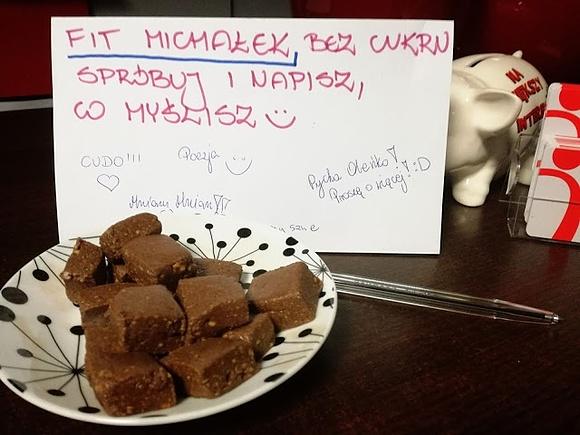 FIT MICHAŁEK, BEZ CUKRU
SPRÓBUJ I NAPISZ,
CO MYŚLISZ
CUDO!!!
Poezja
Pycha Oleńko!
Proszę o więcej! :D
Mniam Mniam!!
NA
WIĘKSZY
INTERES